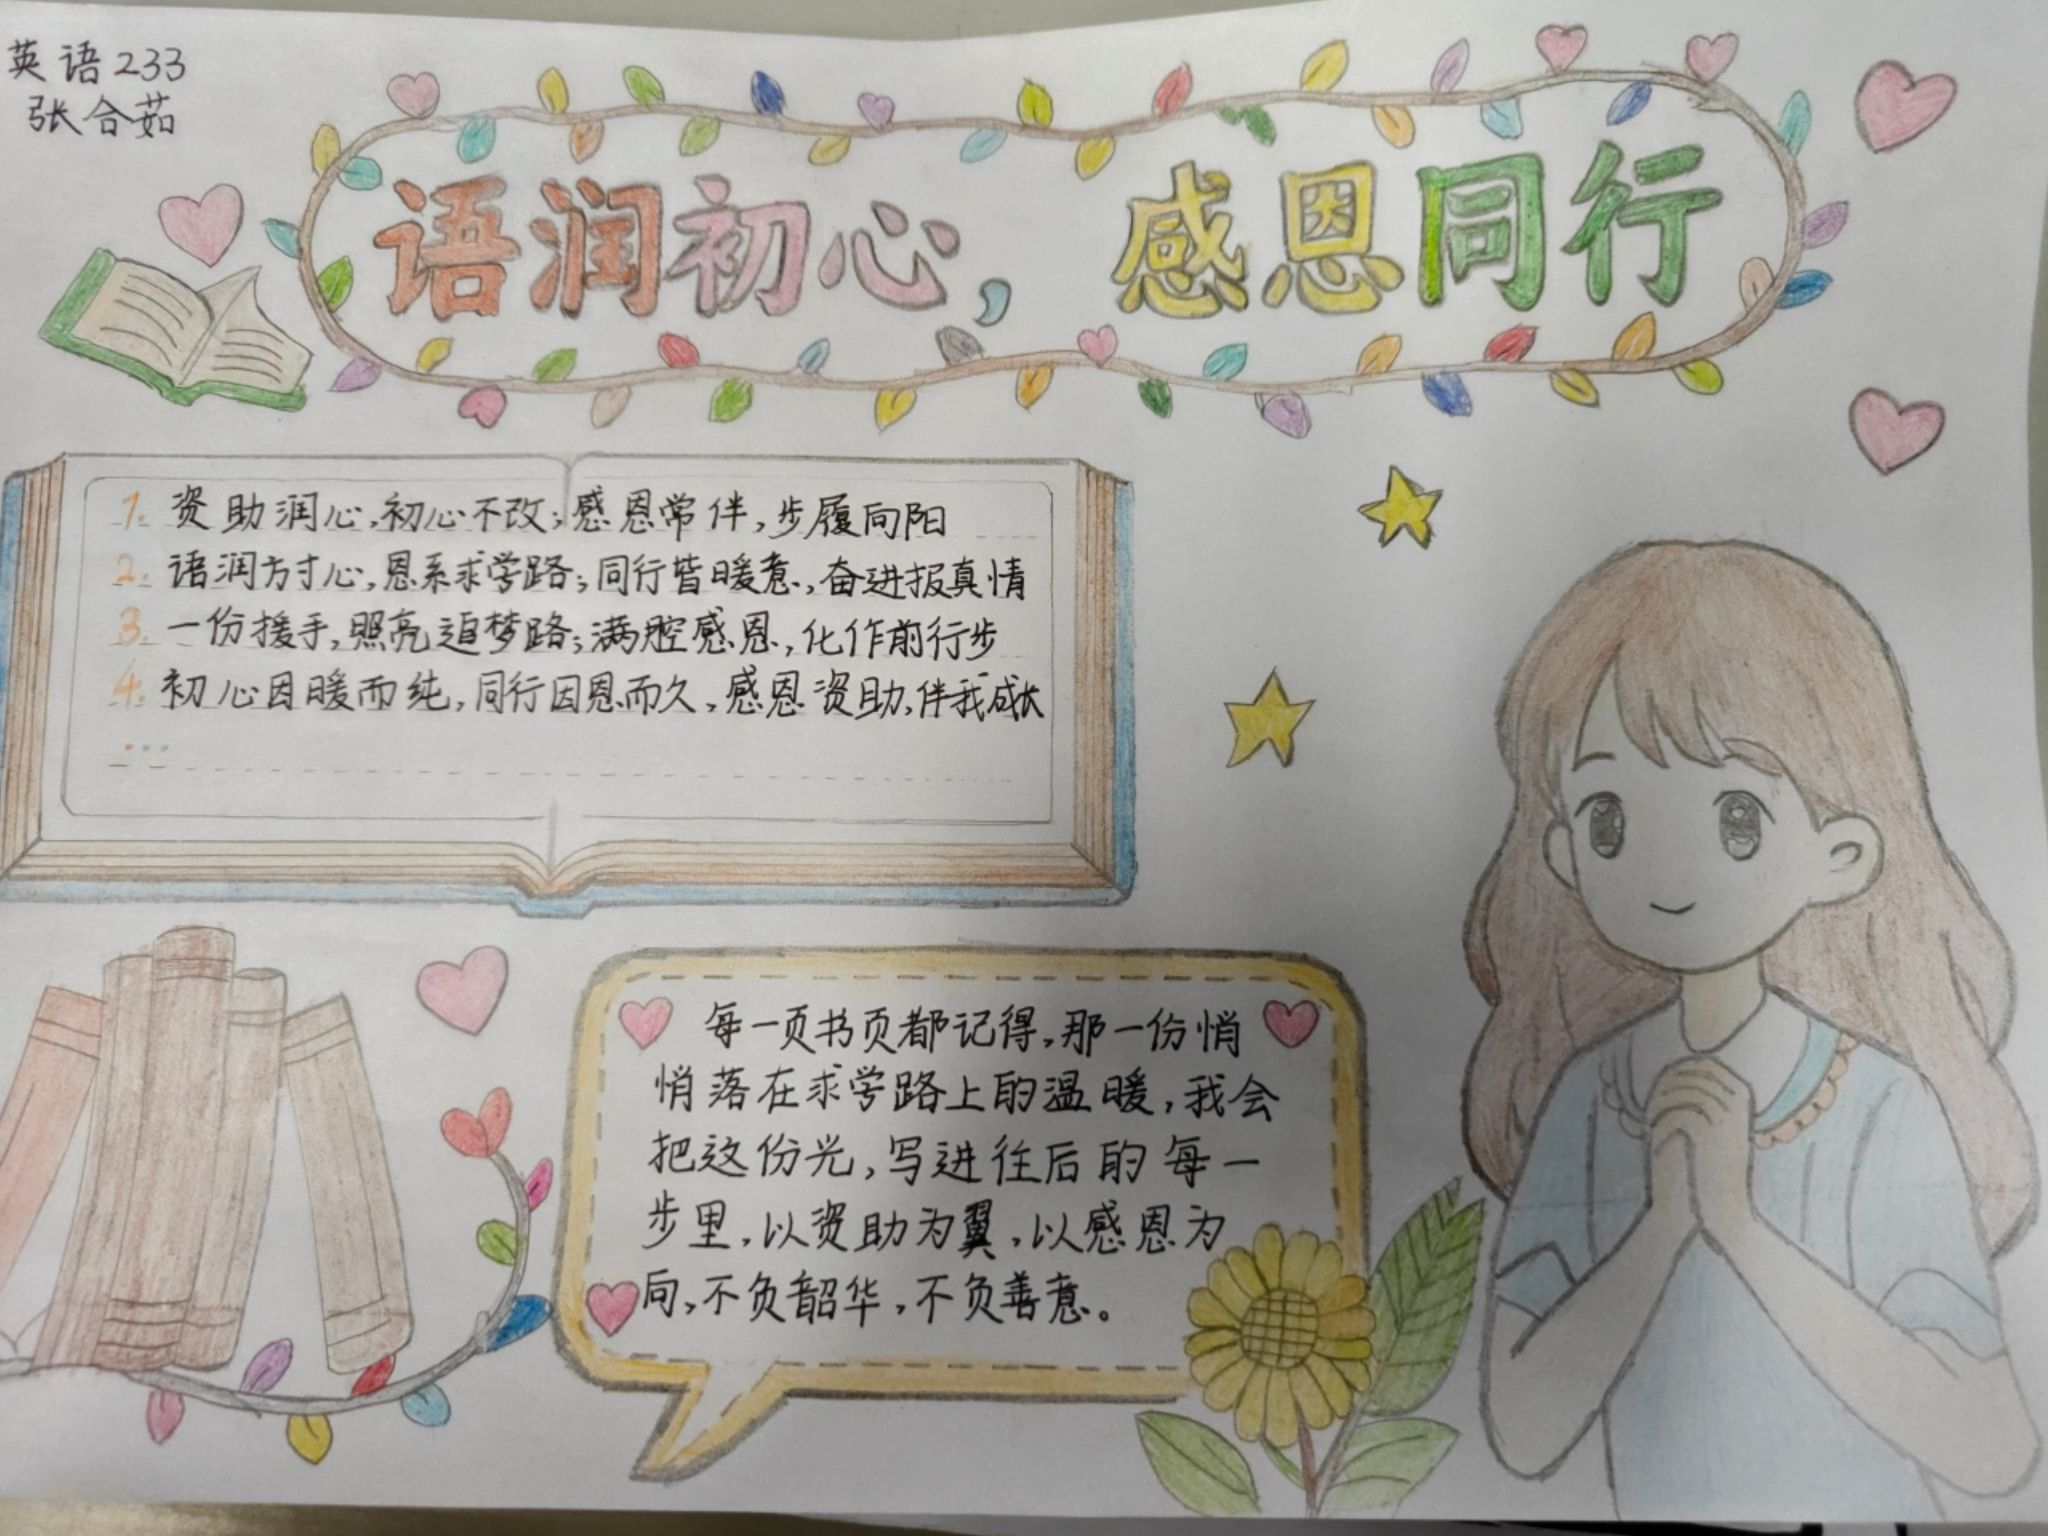 英语233
张合茹
语润初心，感恩同行
1. 资助润心，初心不改；感恩常伴，步履向阳
2. 语润方寸心，恩系求学路；同行皆暖意，奋进报真情
3. 一份援手，照亮追梦路；满腔感恩，化作前行步
4. 初心因暖而纯，同行因恩而久，感恩资助，伴我成长
...
每一页书页都记得，那一份悄
悄落在求学路上的温暖，我会
把这份光，写进往后的每一
步里，以资助为翼，以感恩为
向，不负韶华，不负善意。